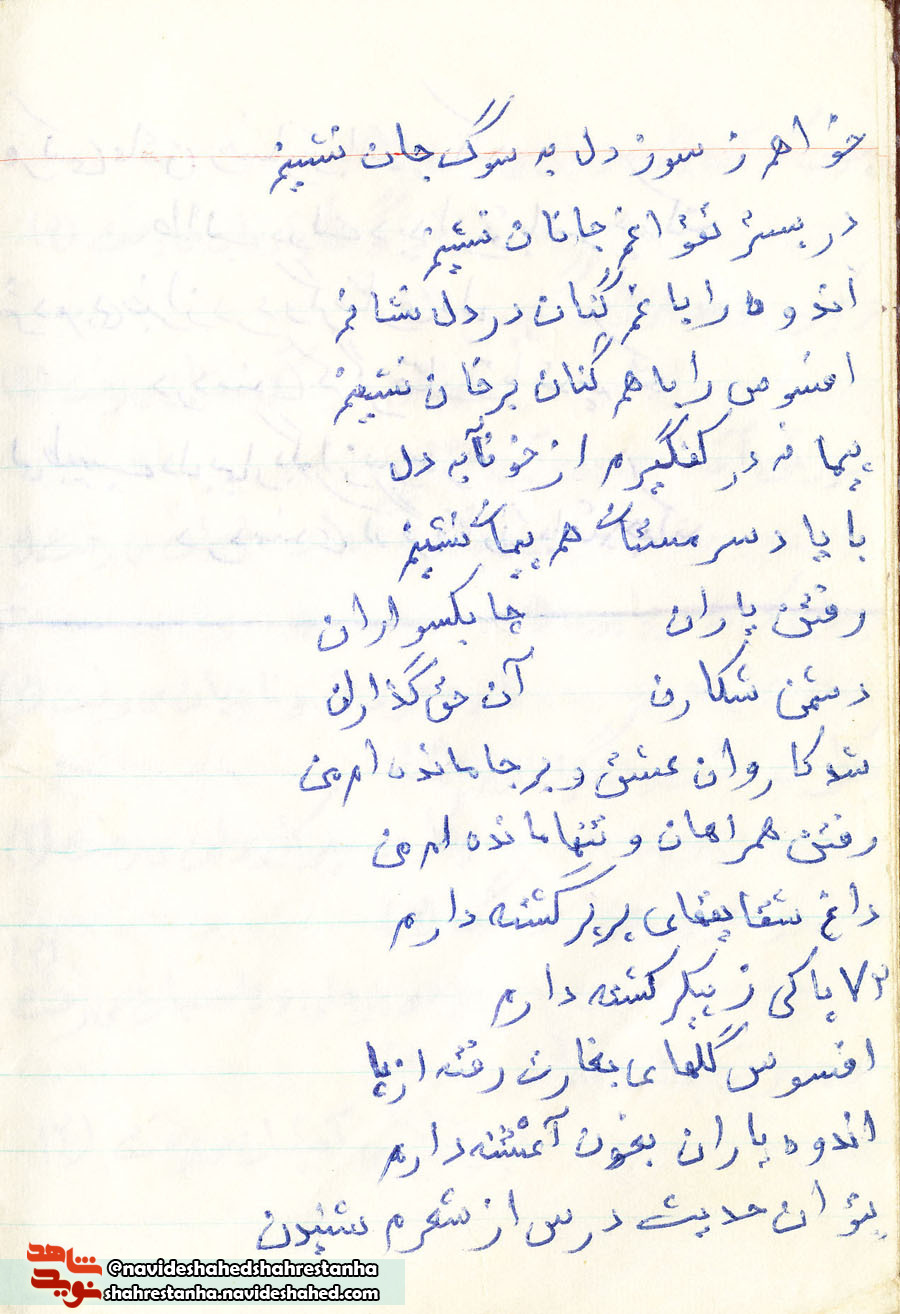 خواهم ز سوز دل به سوگ جان نشینم
در بستر تو از غم جانان نشینم
اندوه را با غم کنان در دل نشانم
افسوس را با هم کنان بر خان نشینم
پیمانه در کف گیرم از خونآبه دل
با یاد سرمستان هم پیمان نشینم
رفتن یاران چابکسواران
دشمن شکاران آن حق گذاران
شد کاروان عشق و بر جا مانده ام من
رفتن همراهان و تنها مانده ام من
داغ شقایقهای پرپر گشته دارم
۷۲ پاکی ز پیکر کشته دارم
افسوس گلهای بغارت رفته از پا
اندوه یاران بخون آغشته دارم
بتوان حدیث درس از شعرم شنیدن
شاهد
نوید
@navideshahedshahrestanha
shahrestanha.navideshahed.com